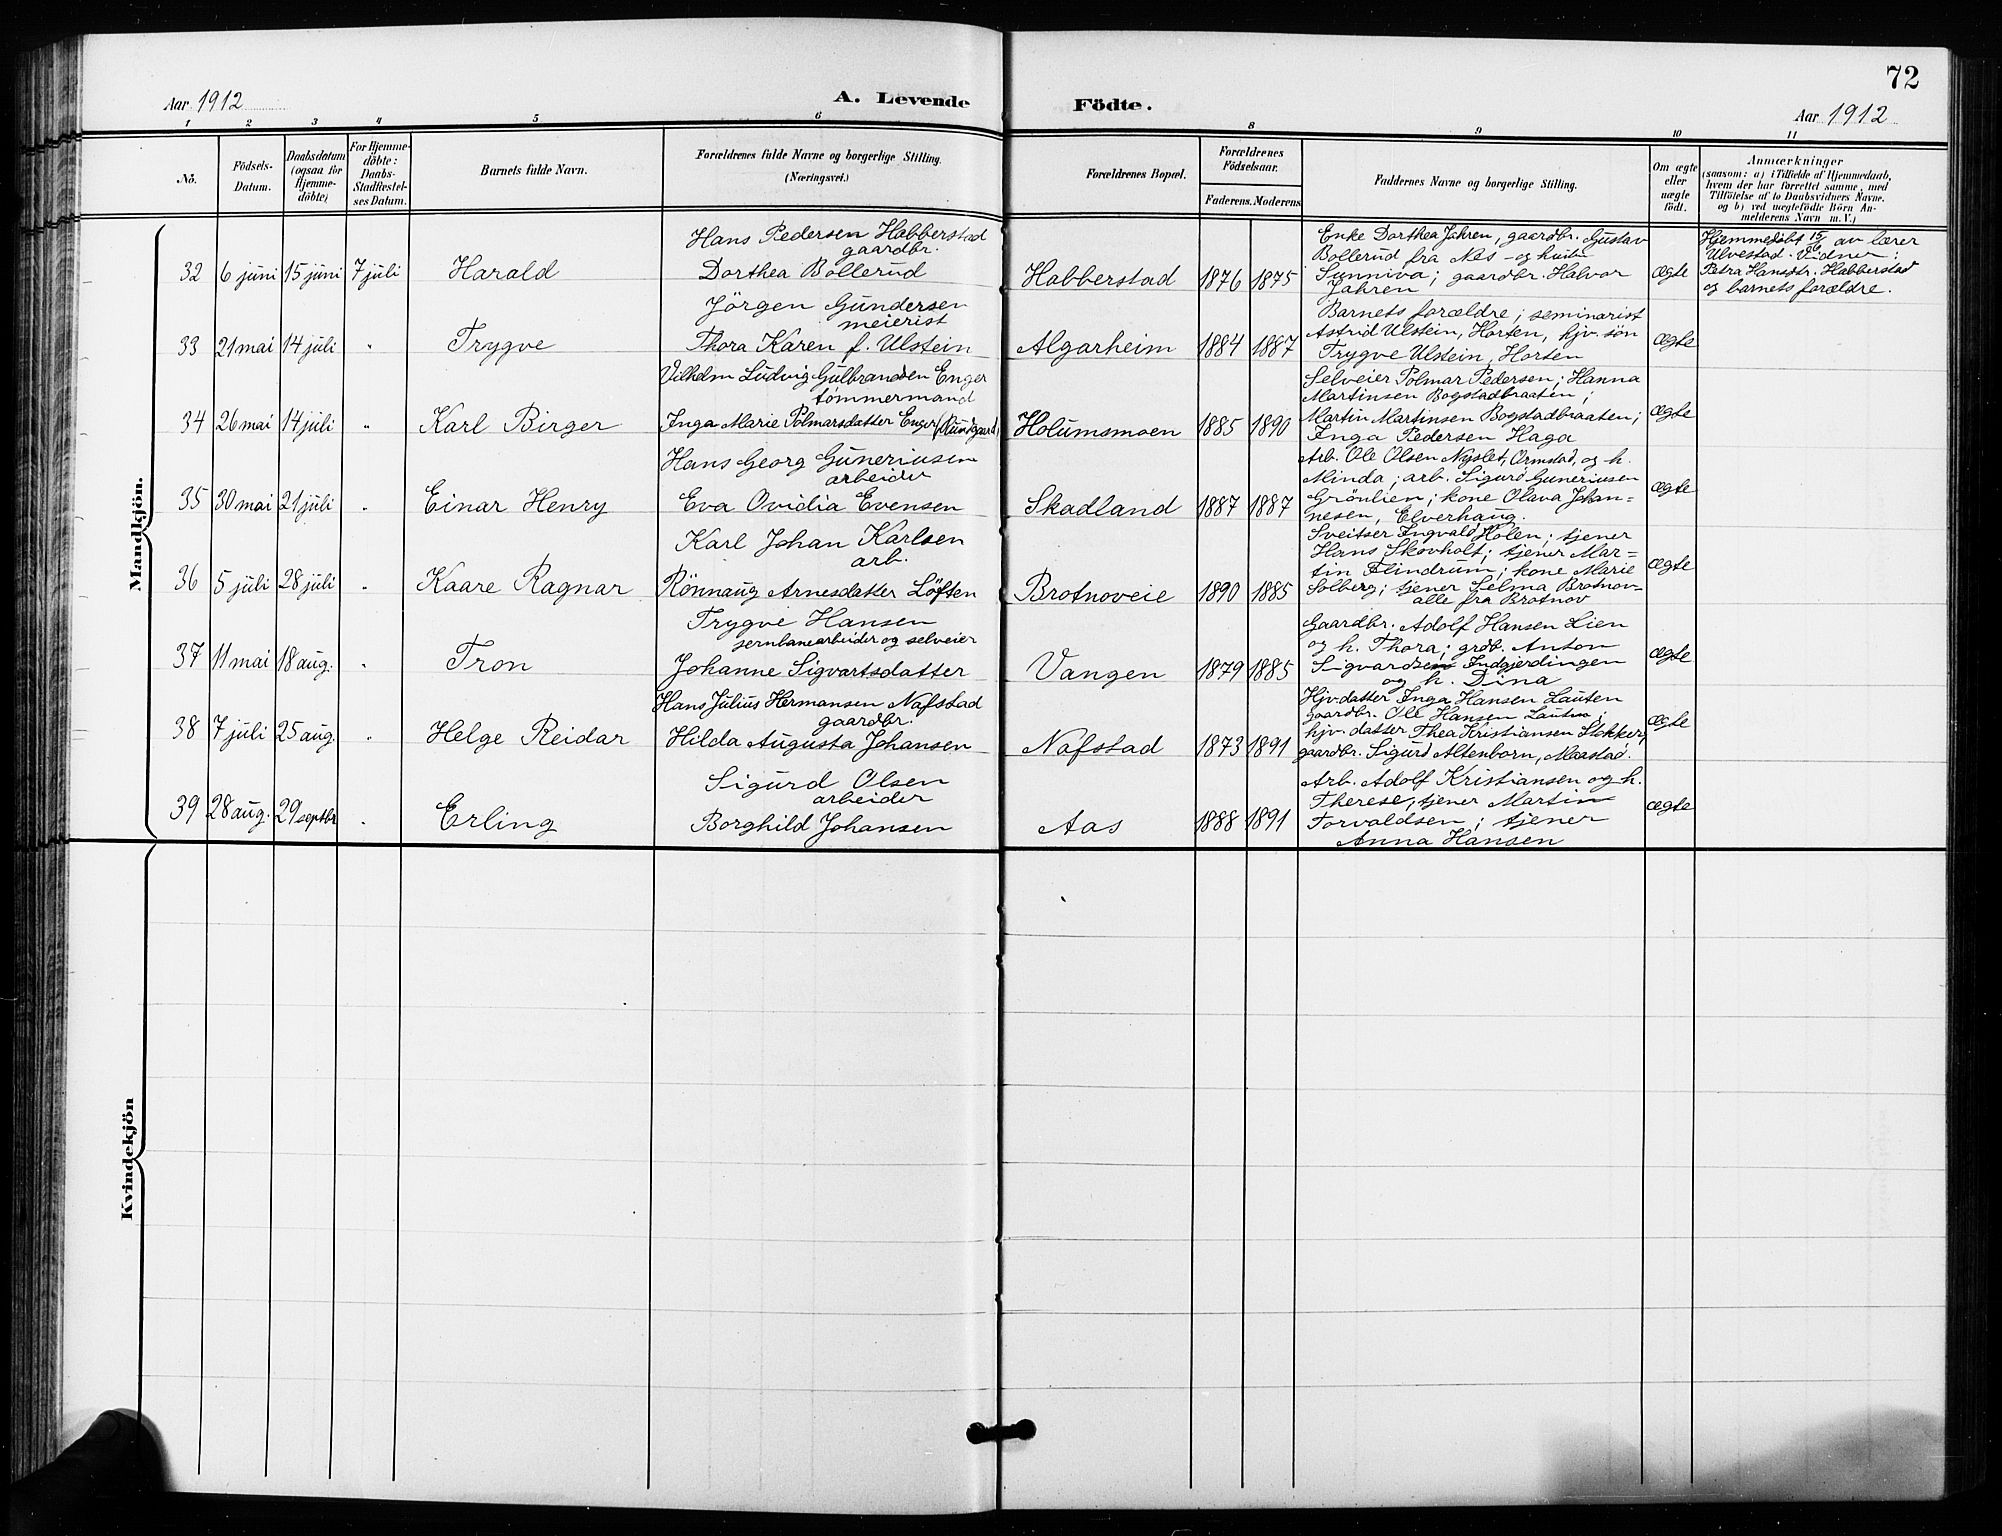 72
Aar 1912
A. Levende Födte.
Aar 1912
1 2 3 4 5 6 8 9 10 11
Nô.
Födsels-Datum.
Daabsdatum (ogsaa for Hjemme-döbte)
For Hjemme-döbte: Daabs-Stadfæstel-ses Datum.
Barnets fulde Navn.
Forældrenes fulde Navne og borgerlige Stilling.
(Næringsvei.)
Forældrenes Bopæl.
Forældrenes Födselsaar.
Faderens. Moderens.
Faddernes Navne og borgerlige Stilling.
Om ægte eller uægte födt.
Anmærkninger
(saasom: a) i Tilfælde af Hjemmedaab,
hvem der har forrettet samme, med
Tilföielse af to Daabsvidners Navne.
og b) ved uægtefödte Börn An-
melderens Navn m. V.)
Mandkjön.
32 6 juni 15 juni 7 juli Harald
Hans Pedersen Habberstad
gaardbr.
Dorthea Bollerud
Habberstad 1876 1875
Enke Dorthea Jahren, gaardbr. Gustav
Bollerud fra Nes - og hustru
Sunniva; gaardbr. Halvor
Jahren
ægte
Hjemmedöbt 15/6 av lærer
Ulvestad. Vidner:
Petra Hansdtr. Habberstad
og barnets forældre.
33 21 mai 14 juli " Trygve
Jörgen Gundersen
meierist
Thora Karen f. Ulstein
Algarheim 1884 1887
Barnets forældre; seminarist
Astrid Ulstein, Horten, hjv. søn
Trygve Ulstein, Horten
ægte
34 26 mai 14 juli " Karl Birger
Vilhelm Ludvig Gulbrandsen Enger
tømmermand
Inga Marie Polmarsdatter Enger (Rundgaard)
Holumsmoen 1885 1890
Selveier Polmar Pedersen; Hanna
Martinsen Bogstadbraaten;
Martin Martinsen Bogstadbraaten;
Inga Pedersen Haga
ægte
35 30 mai 21 juli " Einar Henry
Hans Georg Guneriusen
arbeider
Eva Ovidia Evensen
Skadland 1887 1887
Arb. Ole Olsen Nyslet, Ormstad, og h.
Minda; arb. Sigurd Guneriusen
Grönlien; kone Olava Johan=
nesen, Elverhaug.
ægte
36 5 juli 28 juli " Kaare Ragnar
Karl Johan Karlsen
arb.
Rönnaug Arnesdatter Löften
Brotnoveie 1890 1885
Sveitser Ingvald Holen; tjener
Hans Skovholt; tjener Mar=
tin Flindrum; kone Marie
Solberg; tjener Selma Brotnov-
alle fra Brotnov
ægte
37 11 mai 18 aug. " Tron
Trygve Hansen
jernbanearbeider og selveier
Johanne Sigvartsdatter
Vangen 1879 1885
Gaardbr. Adolf Hansen Lien
og h. Thora; grdb. Anton
Sigvardsen Indgjerdingen
og h. Dina
ægte
38 7 juli 25 aug. " Helge Reidar
Hans Julius Hermansen Nafstad
gaardbr.
Hilda Augusta Johansen
Nafstad 1873 1891
Hjv datter Inga Hansen Lauten
gaardbr. Ole Hansen Lauten;
hjv. datter Thea Kristiansen Slekker,
gaardbr. Sigurd Altenborn, Maastad.
ægte
39 28 aug. 29 septbr " Erling
Sigurd Olsen
arbeider
Borghild Johansen
Aas 1888 1891
Arb. Adolf Kristiansen og h.
Therese, tjener Martin
Torvaldsen; tjener
Anna Hansen
ægte
Kvindekjön